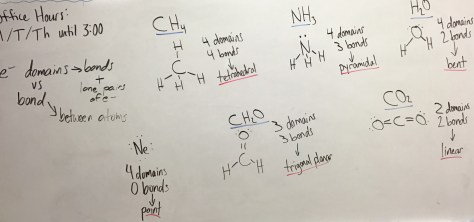 Office Hours:
M/T/Th until 3:00
e- domains → bonds
+
lone pairs
of e-
vs
bond
between atoms
CH4
H
C
H H H
4 domains
4 bonds
tetrahedral
NH3
N
H H H
4 domains
3 bonds
pyramidal
H2O
O
H H
4 domains
2 bonds
bent
Ne:
4 domains
0 bonds
point
CH2O
O
C
H H
3 domains
3 bonds
trigonal planar
CO2
O=C=O
2 domains
2 bonds
linear